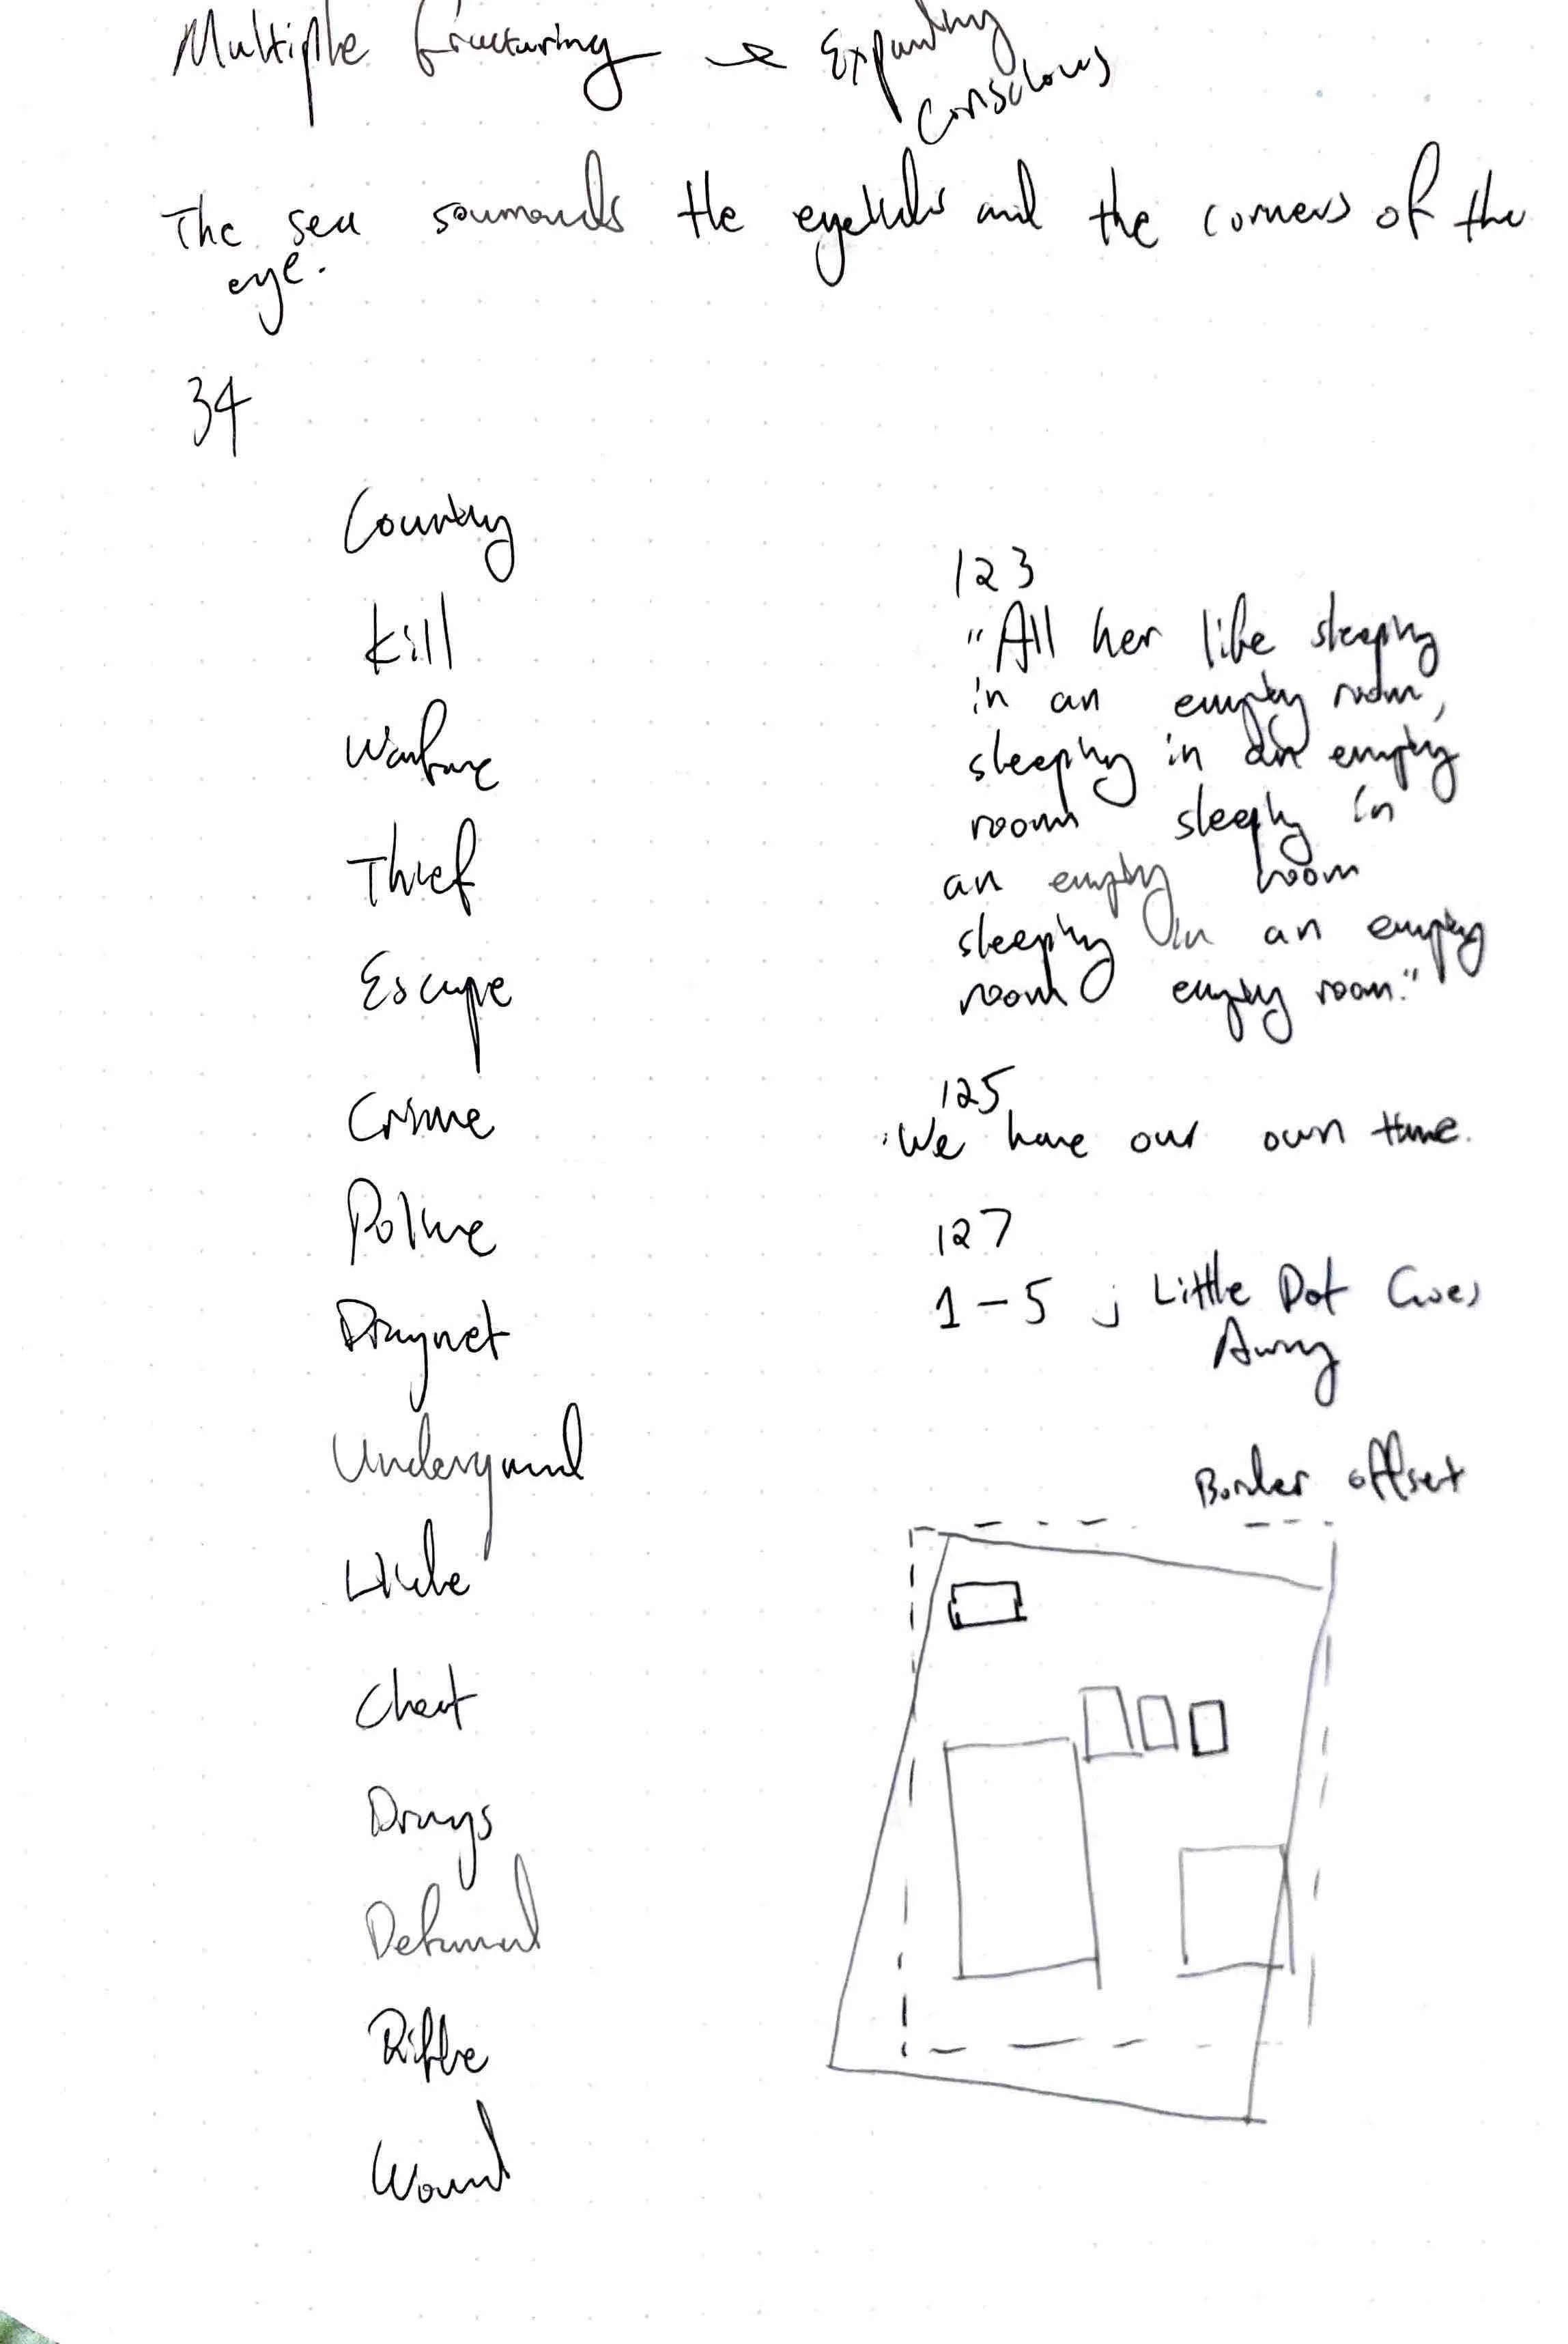 Multiple fracturing → Expanding
conscious
The sea surrounds the eyelids and the corners of the
eye.
34
Country
Kill
Warfare
Thief
Escape
Crime
Police
Dragnet
Underground
Cheat
Drugs
Rifle
Wound
123
"All her life sleeping
in an empty room,
sleeping in an empty
room sleeping in
an empty room
sleeping in an empty
room empty room."
125
We have our own time.
127
1 – 5 ; Little Dot Goes
Away
Border offset